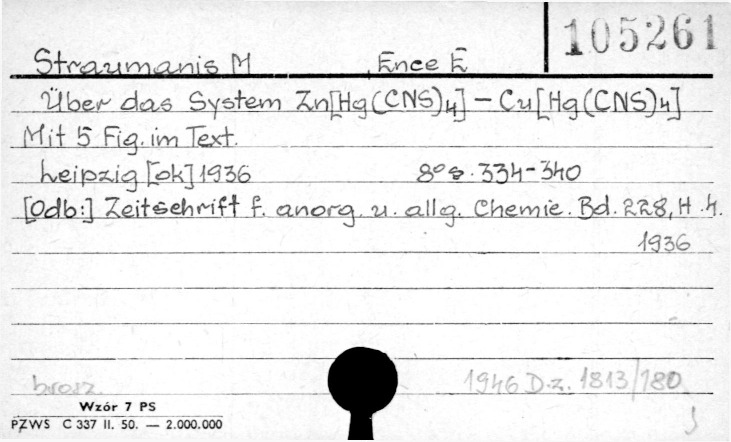 105261
Straumanis M , Ence E
Über das System Zn[Hg(CNS)4] – Cu[Hg(CNS)4]
Mit 5 Fig. im Text.
Leipzig [ok] 1936 8° s. 334-340
[Odb:] Zeitschrift f. anorg. u. allg. Chemie. Bd. 228, H. 4.
1936
brosz. 1946 D.z. 1813/180
Wzór 7 PS
PZWS C 337 II. 50. — 2.000.000